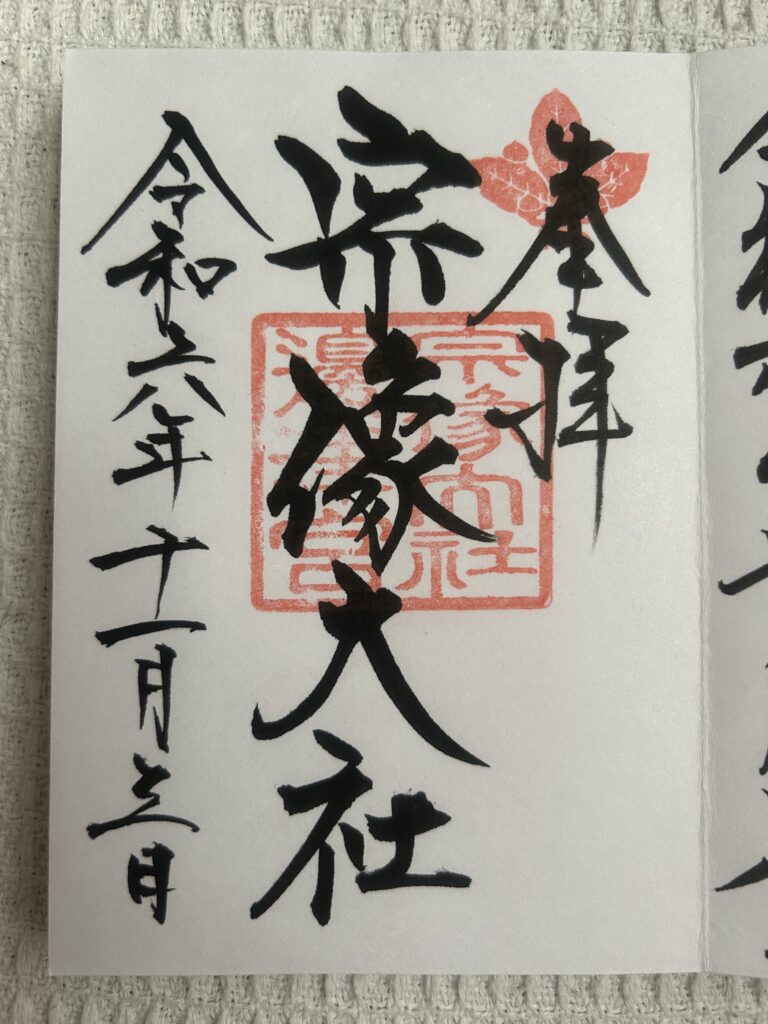 奉拝
宗像大社
宗像大社
邊津宮
令和六年十一月三日